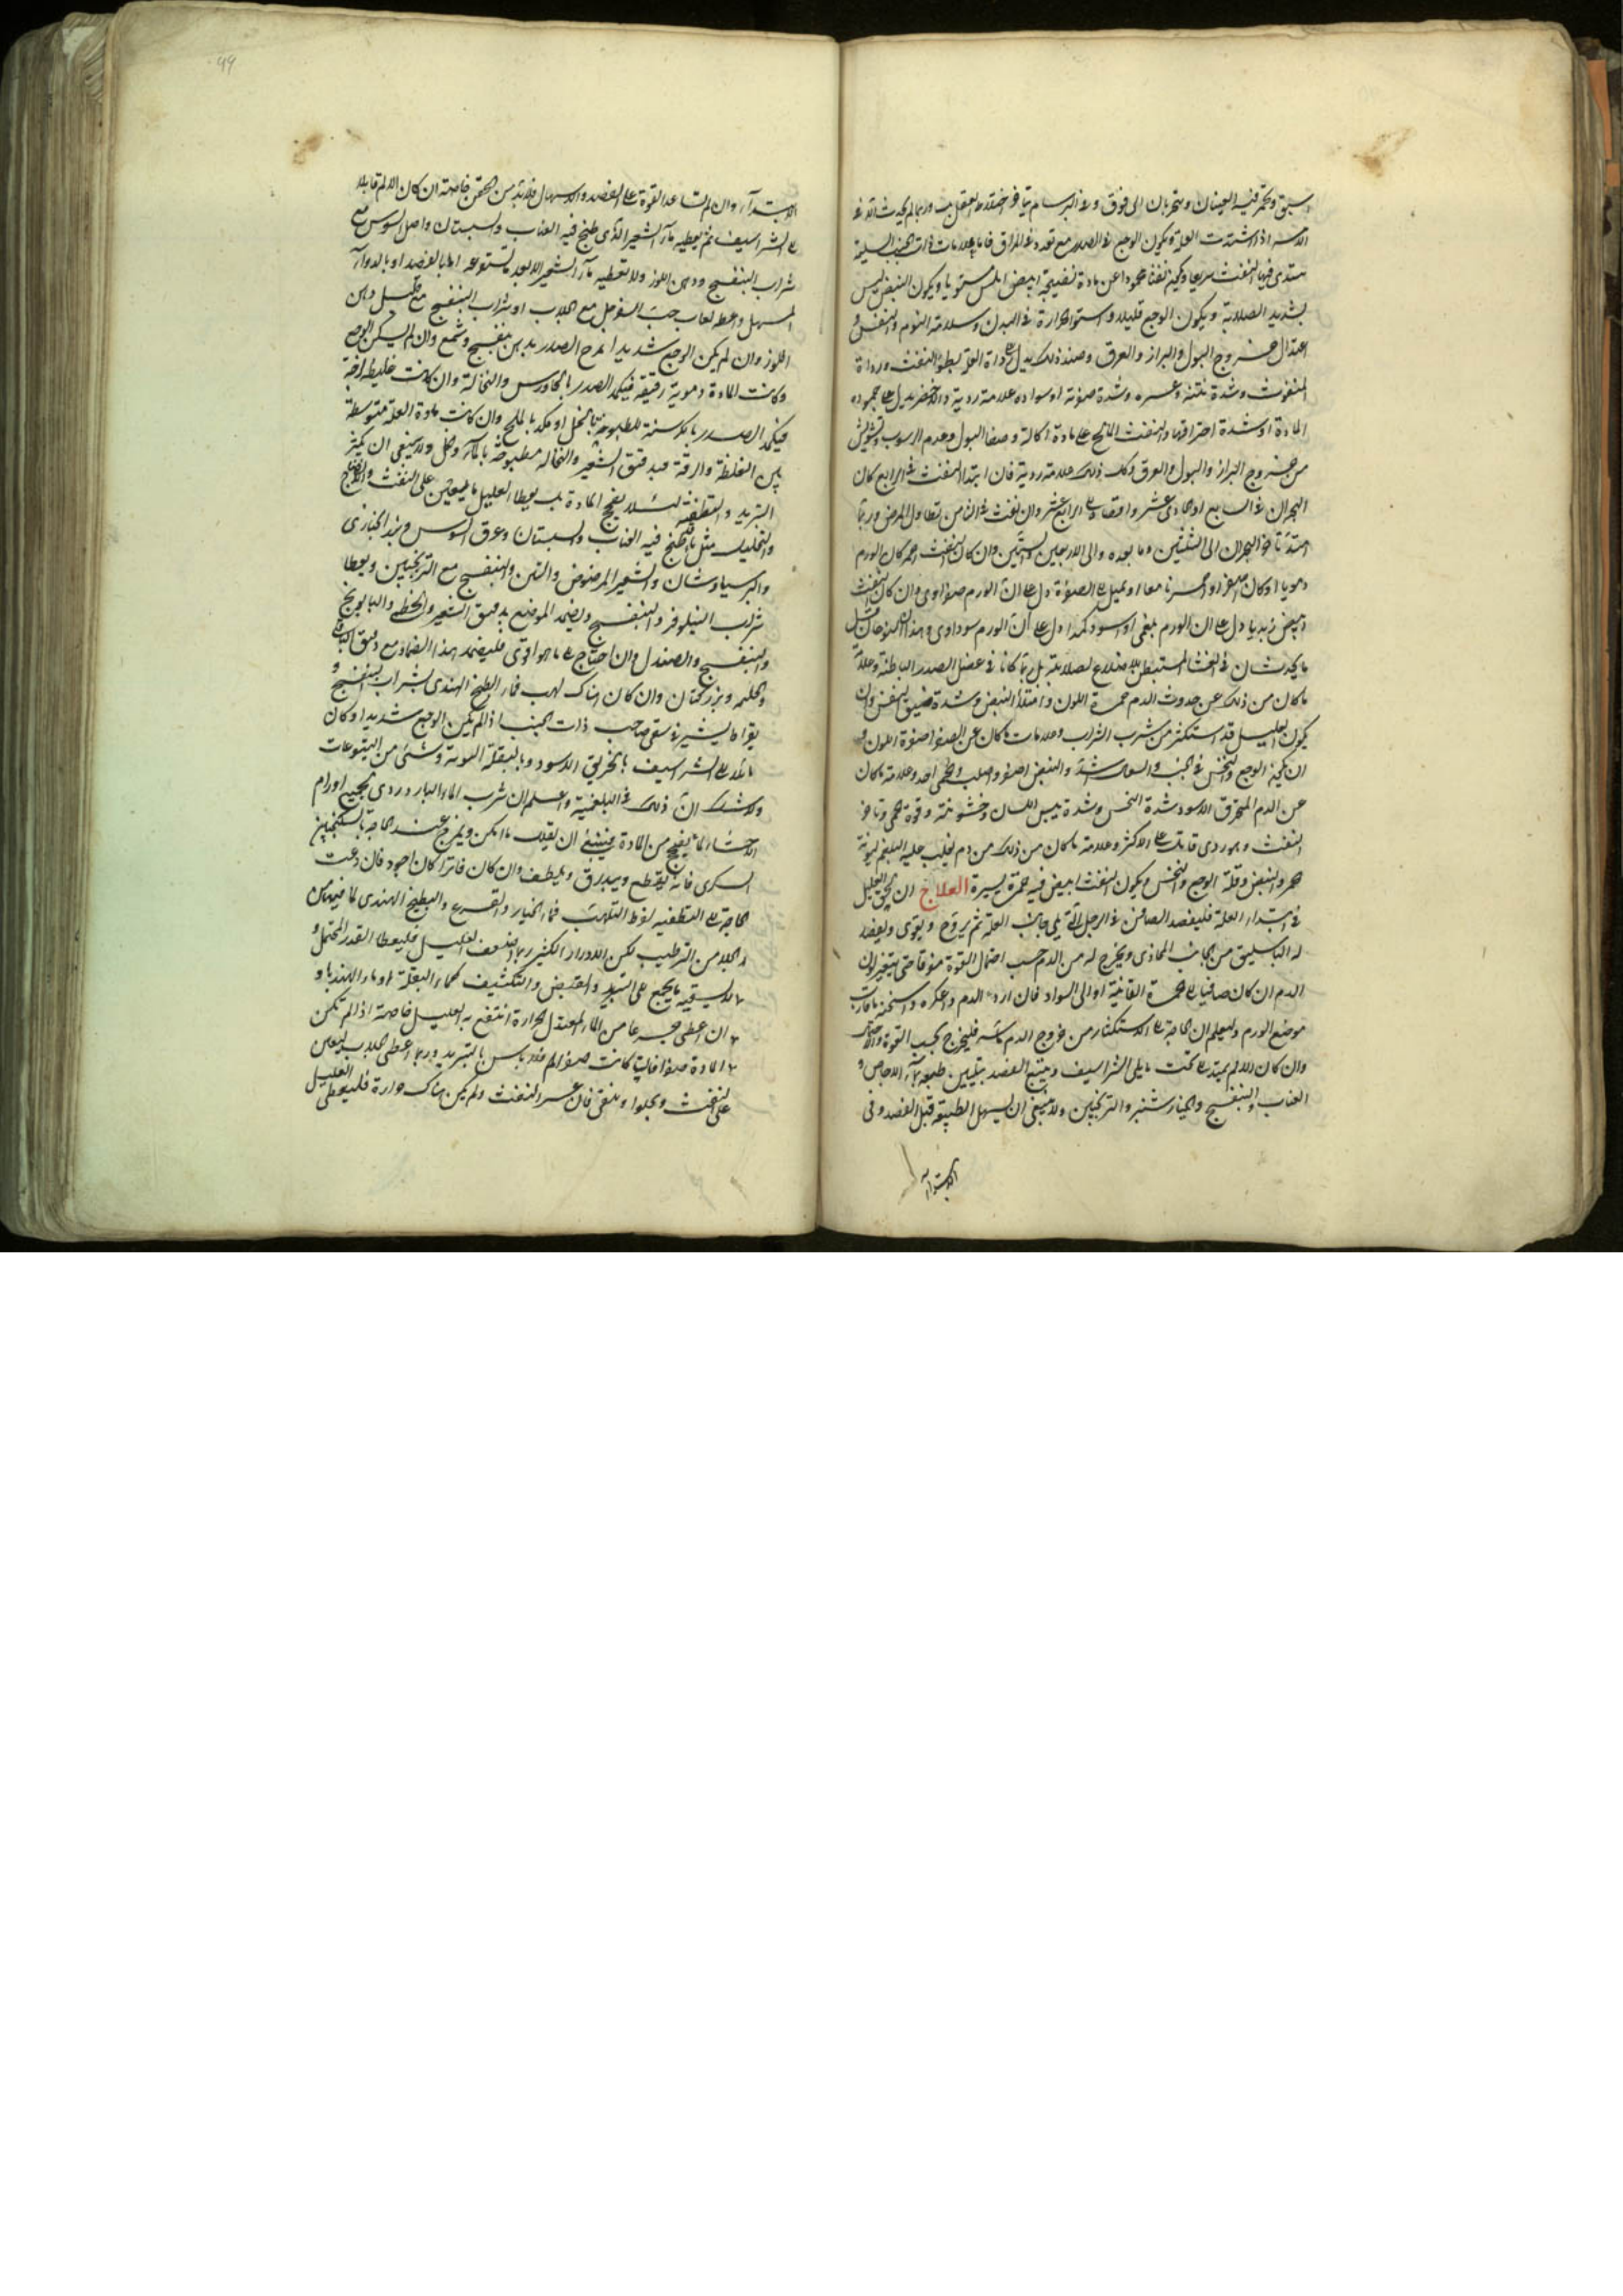 يسبق ويحمر فيه العينان ويتحركان الى فوق وفي البرسام يتاخر اختلاط العقل وربما لم يحدث الا في
الاسر اذا اشتدت العلة ويكون الوجع في الصدر مع تمدد في المراق فاما علامات ذات الجنب السليمة
يبتدى فيها النفث سريعا ويكون نفثا محمودا عن مادة نضيجة ابيض املس مستويا ويكون النبض ليس
بشديد الصلابة ويكون الوجع قليلا واستواء الحرارة في البدن وسلامة النوم والنفس و
اعتدال خروج البول والبراز والعرق وضد ذلك يدل على رداءة العلة بطؤ النفث ورداءة
المنفوث وشدة نتنه وعسره وشدة صفرته او سواده علامة ردية والاخضر يدل على جموده
المادة او شدة احتراقها والنفث المالح على مادة اكالة وصفا البول وعدم الرسوب وتشويش
من خروج البراز والبول والعرق وكل ذلك علامة ردية فان ابتدا النفث في الرابع كان
البحران في السابع او الحادى عشر واقصاه الى الرابع عشر وان نفث في الثامن تطاول المرض وربما
امتد تاخر البحران الى الثلثين وما بعده والى الاربعين والستين وان كان النفث احمر كان الورم
دمويا او كان اصفر او احمر ناصعا او يميل الى الصفرة دل على ان الورم صفراوى وان كان النفث
ابيض زبديا دل على ان الورم بلغمى او اسود كمدا دل على ان الورم سوداوى وهذان النوعان قل
ما يحدثان في الغشاء المستبطن للاضلاع لصلابته بل ربما كانا في عضل الصدر الباطنة وعلامة
ما كان من ذلك عن حدوث الدم حمرة اللون وامتلاء النبض وشدة ضيق النفس وان
يكون العليل قد استكثر من شرب الشراب وعلامات ما كان عن الصفرا صفرة اللون و
ان يكون الوجع والنخس في الجنب والسعال اشد والنبض اصغر واصلب والحمى احد وعلامة ما كان
عن الدم المحترق الاسود شدة النخس وشدة يبس اللسان وخشونته وقوة الحمى وتاخر
النفث وهو ردى قاتل على الاكثر وعلامة ما كان من ذلك من دم يغلب عليه البلغم لينونة
الحمى والنبض وقلة الوجع والنخس ويكون النفث ابيض فيه حمرة يسيرة العلاج ان لحق العليل
في ابتداء العلة فليفصد الصافن في الرجل التى يلى جانب العلة ثم يروح ويقوى ويفصد
له الباسليق من الجانب المحاذى ويخرج له من الدم حسب احتمال القوة منوقا حتى يتغير لون
الدم ان كان صافيا الى الحمرة القانية او الى السواد فان اردا الدم واعكره واسخنه ما قارب
موضع الورم وليعلم ان الحاجة الى الاستكثار من خروج الدم ماسة فليخرج بحسب القوة والاحتمال
وان كان الالم يمتد الى تحت ما يلى الشراسيف ويتبع الفصد بتليين طبعه بماء الاجاص و
العناب والبنفسج والخيارشنبر والترنجبين ولا ينبغى ان يسهل الطبيعة قبل الفصد وفى
الابتداء
99
الابتداء وان لم تساعد القوة على الفصد والاسهال فلا بد من الحقن خاصة ان كان الالم قابلا
الى الشراسيف ثم يعطيه ماء الشعير الذى طبخ فيه العناب والسبستان واصل السوس مع
شراب البنفسج ودهن اللوز ولا تعطيه ماء الشعير الا بعد ما تستفرغه اما بالفصد او بالدواء
المسهل واعطه لعاب حب السفرجل مع الجلاب او شراب البنفسج مع قليل دهن
اللوز وان لم يكن الوجع شديدا يمرخ الصدر بدهن بنفسج وشمع وان لم يسكن الوجع
وكانت المادة دموية رقيقة فيكمد الصدر بالجاورس والنخالة وان كانت غليظة لزجة
فيكمد الصدر بالكرسنة المطبوخة بالخل او يكمد بالملح وان كانت مادة العلة متوسطة
بين الغلظة والرقة فبدقيق الشعير والنخالة مطبوخة بالماء وخل ولا ينبغى ان يكثر
التبريد والتطفية لئلا يفجج المادة بل يعطا العليل ما يعين على النفث والنضج
والتحليل مثل ما طبخ فيه العناب والسبستان وعرق السوس وبزر الخبازى
والبرسياوشان والشعير المرضوض والتين والبنفسج مع الترنجبين ويعطا
شراب النيلوفر والبنفسج ويضمد الموضع بدقيق الشعير والخطمى والبابونج
والبنفسج والصندل وان احتاج الى ما هو اقوى فليضمد بهذا الضماد مع دقيق الباقلى
والحلبه وبزر كتان وان كان هناك لهب فماء البطيخ الهندى بشراب البنفسج و
بقراط يشير في سقى صاحب ذات الجنب اذا لم يكن الوجع شديدا وكان
مائلا الى الشراسيف بالخربق الاسود وبالبقلة البرية وشئ من اليتوعات
ولا شك ان ذلك في البلغمية واعلم ان شرب الماء البارد ردى لجميع اورام
الاحشاء لما يفجج من المادة فينبغى ان يقلل ما امكن ويمزج عند الحاجة بالسكنجبين
السكرى فانه يقطع ويبدرق ويلطف وان كان فاترا كان اجود فان دعت
الحاجة الى التطفيه لفرط التلهب فماء الخيار والقرع والبطيخ الهندى لما فيها من
الجلاء من الترطيب لكن الادرار الكثير ربما اضعف العليل فليعطا القدر المحتمل و
لا يسقيه ما يجمع الى التبريد والقبض والتكثيف كماء البقلة او ماء الهندبا و
ان اعطى جرعا من الماء المعتدل الحرارة انتفع به العليل خاصة اذا لم تكن
المادة صفرا فاذا كانت صفرا فلا باس بالتبريد وربما اعطى الجلاب ليعين
على النفث ويجلوا وينقى فان عسر النفث ولم يكن هناك حرارة فليعطى العليل